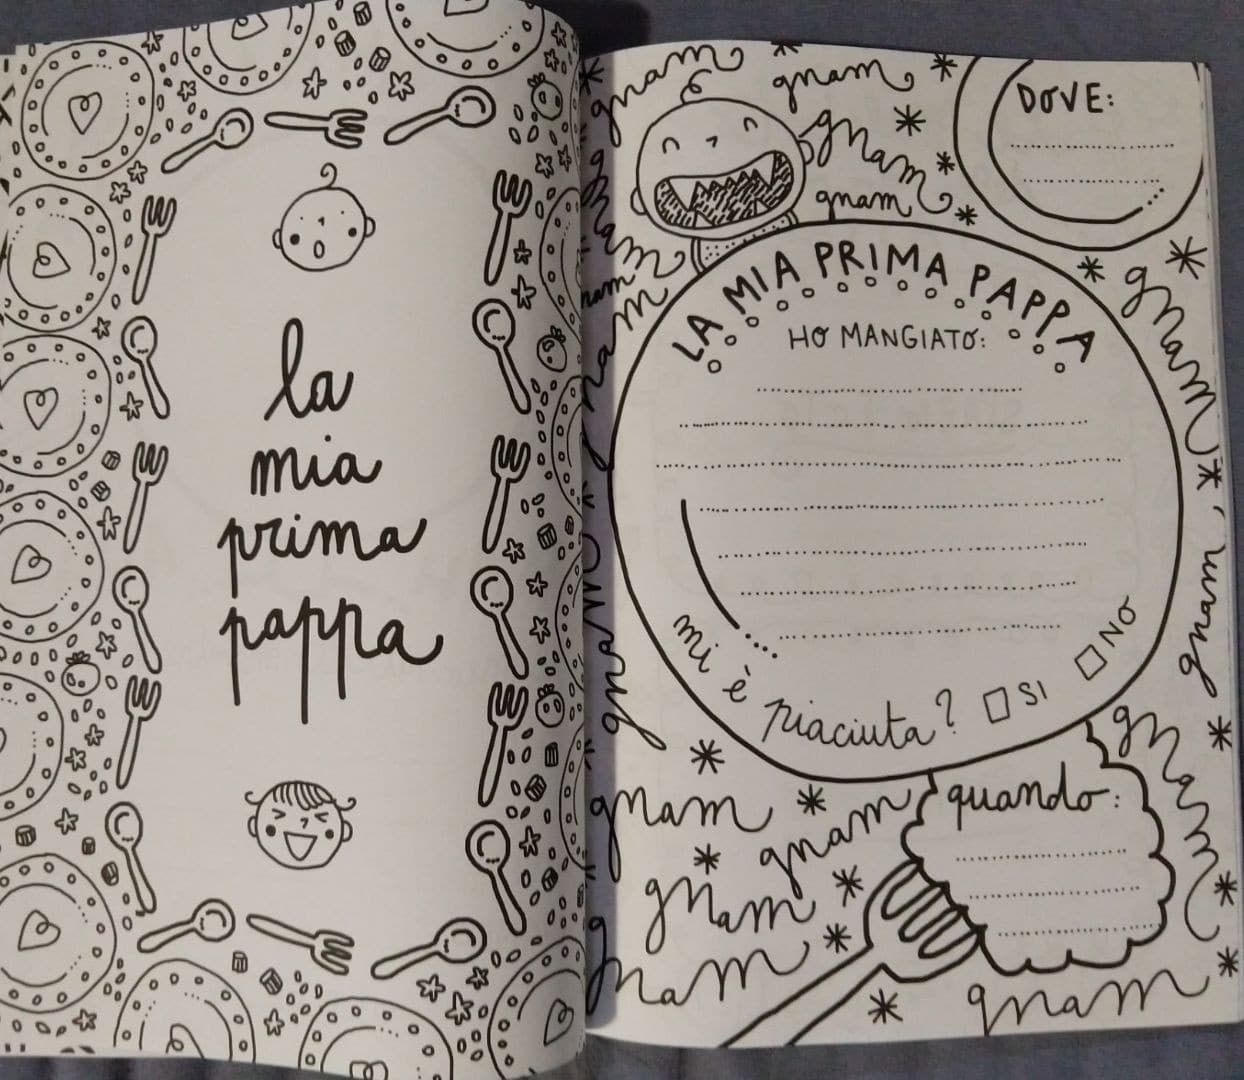 la
mia
prima
pappa
gnam
gnam
gnam
gnam
DOVE:
gnam
nam
gnam
LA MIA PRIMA PAPPA
HO MANGIATO:
gnam
gnam
mi è piaciuta? SI NO
gnam
gnam
gnam
gnam
quando:
gnam
gnam
gnam
gnam